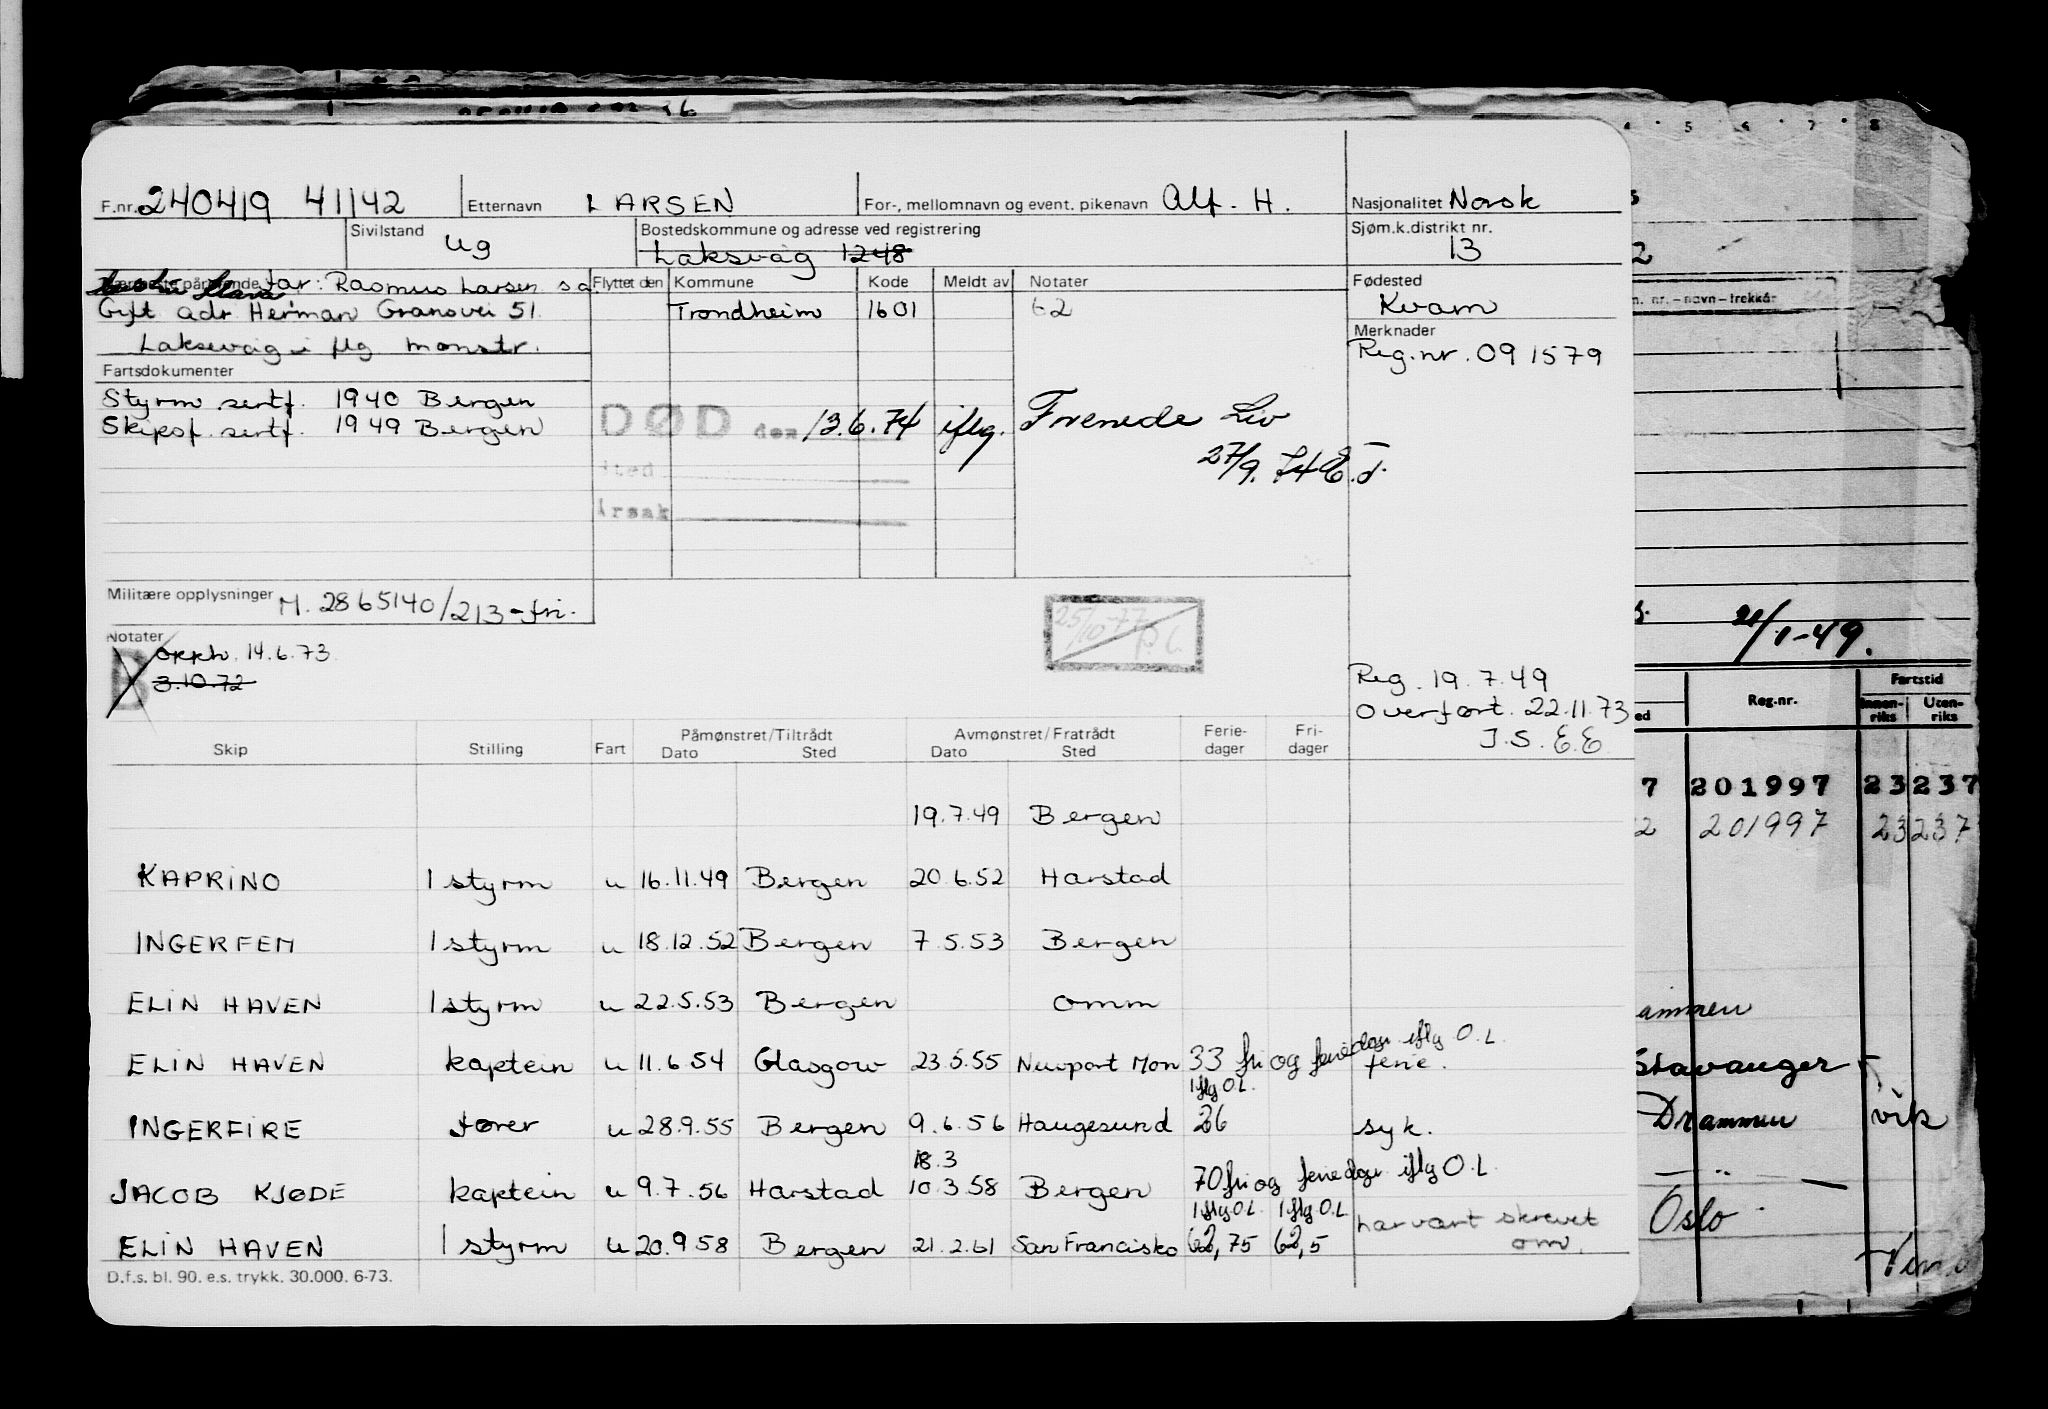 F.nr. 240419 41142 Etternavn LARSEN For-, mellomnavn og event. pikenavn Alf. H. Nasjonalitet Norsk
Sivilstand ug Bostedskommune og adresse ved registrering Sjøm.k.distrikt nr.
Laksevåg 1248 13
far: Rasmus Larsen s.a. Flyttet den Kommune Kode Meldt av Notater Fødested
Gift adr Herman Gransvei 51 Trondheim 1601 62 Kvam
Laksevåg iflg mønstr. Merknader
Reg.nr. 091579
Fartsdokumenter
Styrm sertf. 1940 Bergen
Skipsf. sertf. 1949 Bergen
DØD den 13.6.74 iflg. Forenede Liv
27/9. 74
Sted
Årsak
Militære opplysninger M. 2865140/213-fri.
25/10-77
Notater
B oppb. 14.6.73
3.10.72
Reg. 19.7.49
Overført. 22.11.73
J.S. E.E
Skip Stilling Fart Påmønstret/Tiltrådt Dato Sted Avmønstret/Fratrådt Dato Sted Ferie-dager Fri-dager
19.7.49 Bergen
KAPRINO 1 styrm u 16.11.49 Bergen 20.6.52 Harstad
INGERFEM 1 styrm u 18.12.52 Bergen 7.5.53 Bergen
ELIN HAVEN 1 styrm u 22.5.53 Bergen omm
ELIN HAVEN kaptein u 11.6.54 Glasgow 23.5.55 Newport Mon 33 fri og feriedgr iflg O.L. ferie.
iflg O.L.
INGERFIRE fører u 28.9.55 Bergen 9.6.56 Haugesund 26 syk.
18.3
JACOB KJØDE kaptein u 9.7.56 Harstad 10.3.58 Bergen 70 fri og feriedgr iflg O.L
iflg O.L. iflg O.L har vært skrevet
ELIN HAVEN 1 styrm u 20.9.58 Bergen 21.2.61 San Francisko 62,75 62,5 om.
D.f.s. bl. 90. e.s. trykk. 30.000. 6-73.
4 5 6 7 8
2
nr. – navn – trekkår
21/1-49.
Reg.nr. Fartstid
Innen-riks Uten-riks
7 201997 23 237
2 201997 23 237
ammen
Stavanger
Drammen vik
Oslo